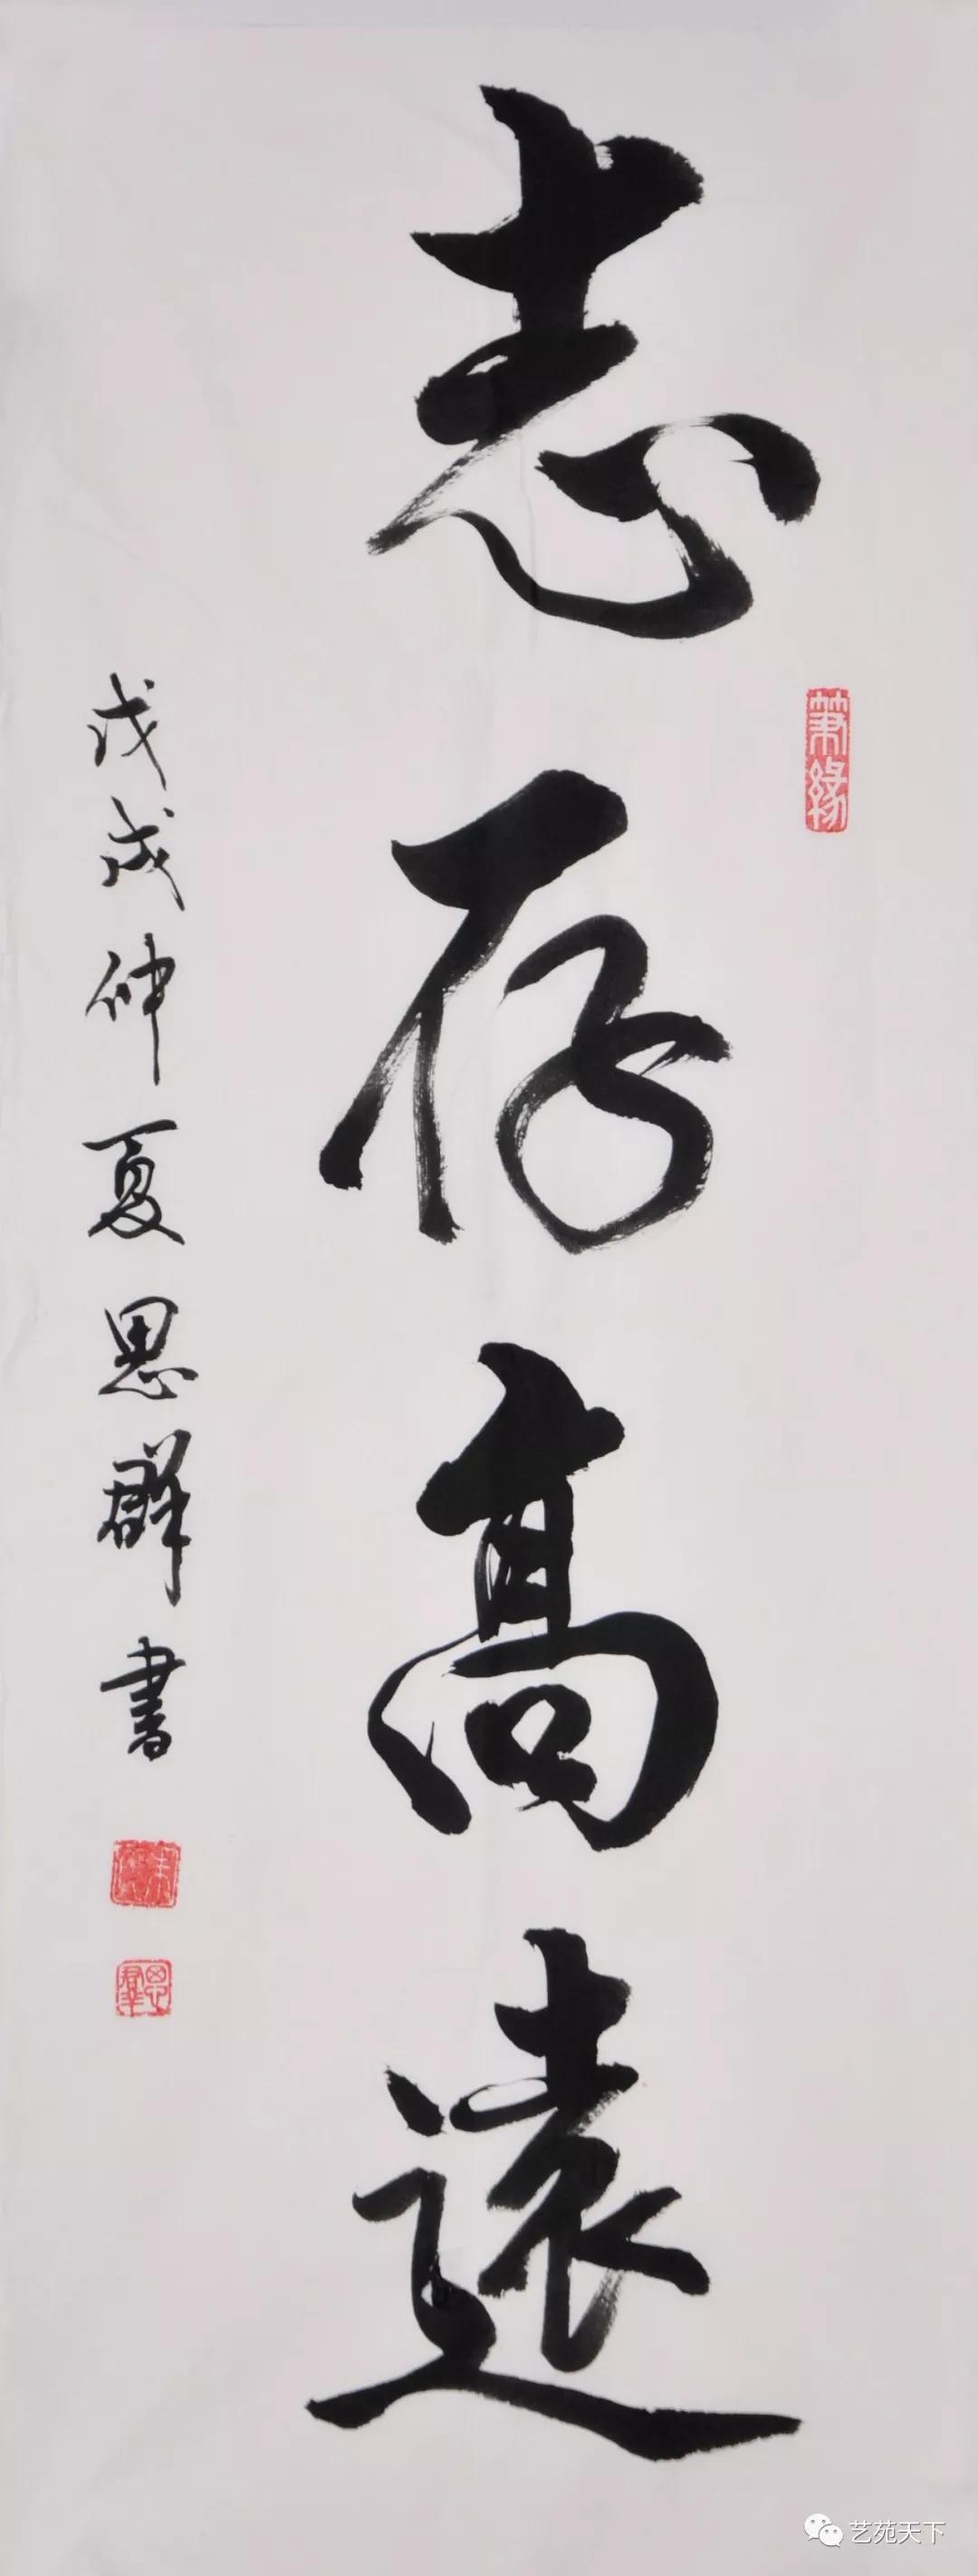 志存高遠
筆緣
戊戌仲夏思群書
思羣
艺苑天下